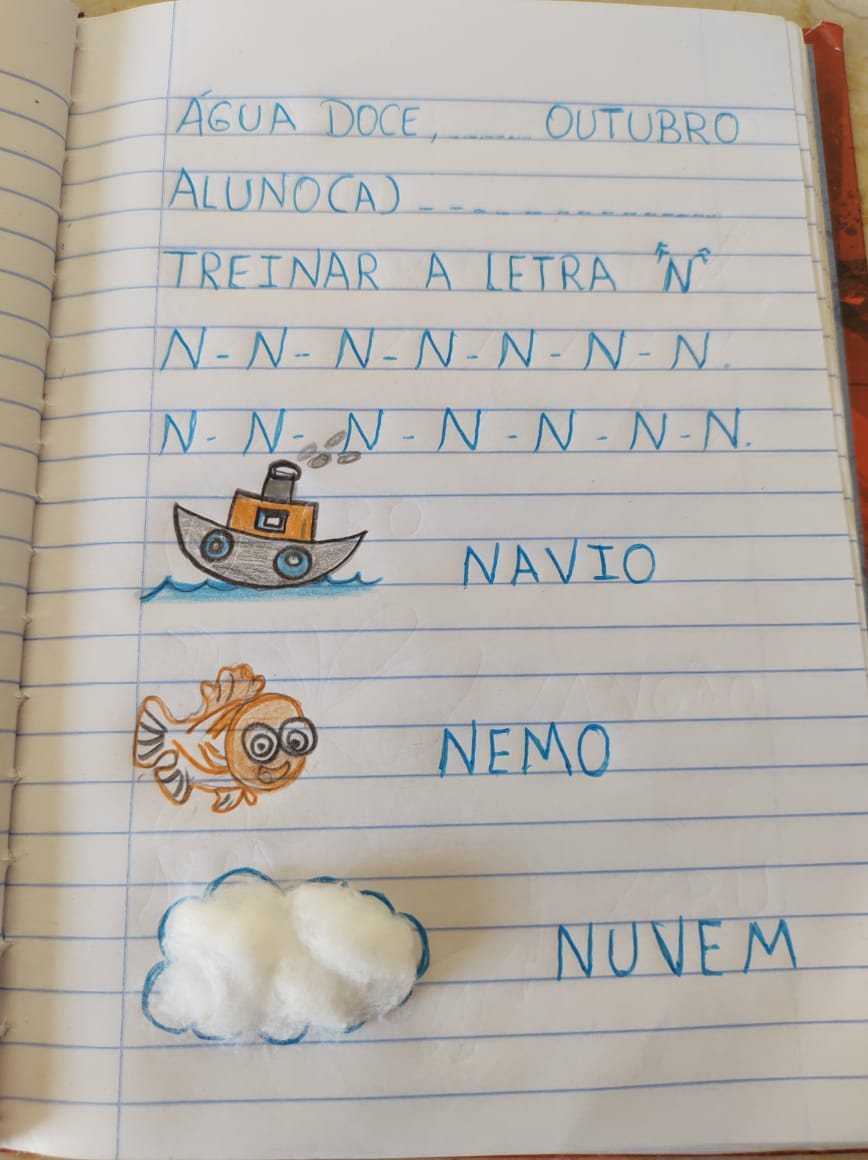 ÁGUA DOCE, ...... OUTUBRO
ALUNO(A) _ _ _ _ _ _ _ _ _ _ _ _ _
TREINAR A LETRA "N"
N - N - N - N - N - N - N.
N - N - N - N - N - N - N.
NAVIO
NEMO
NUVEM